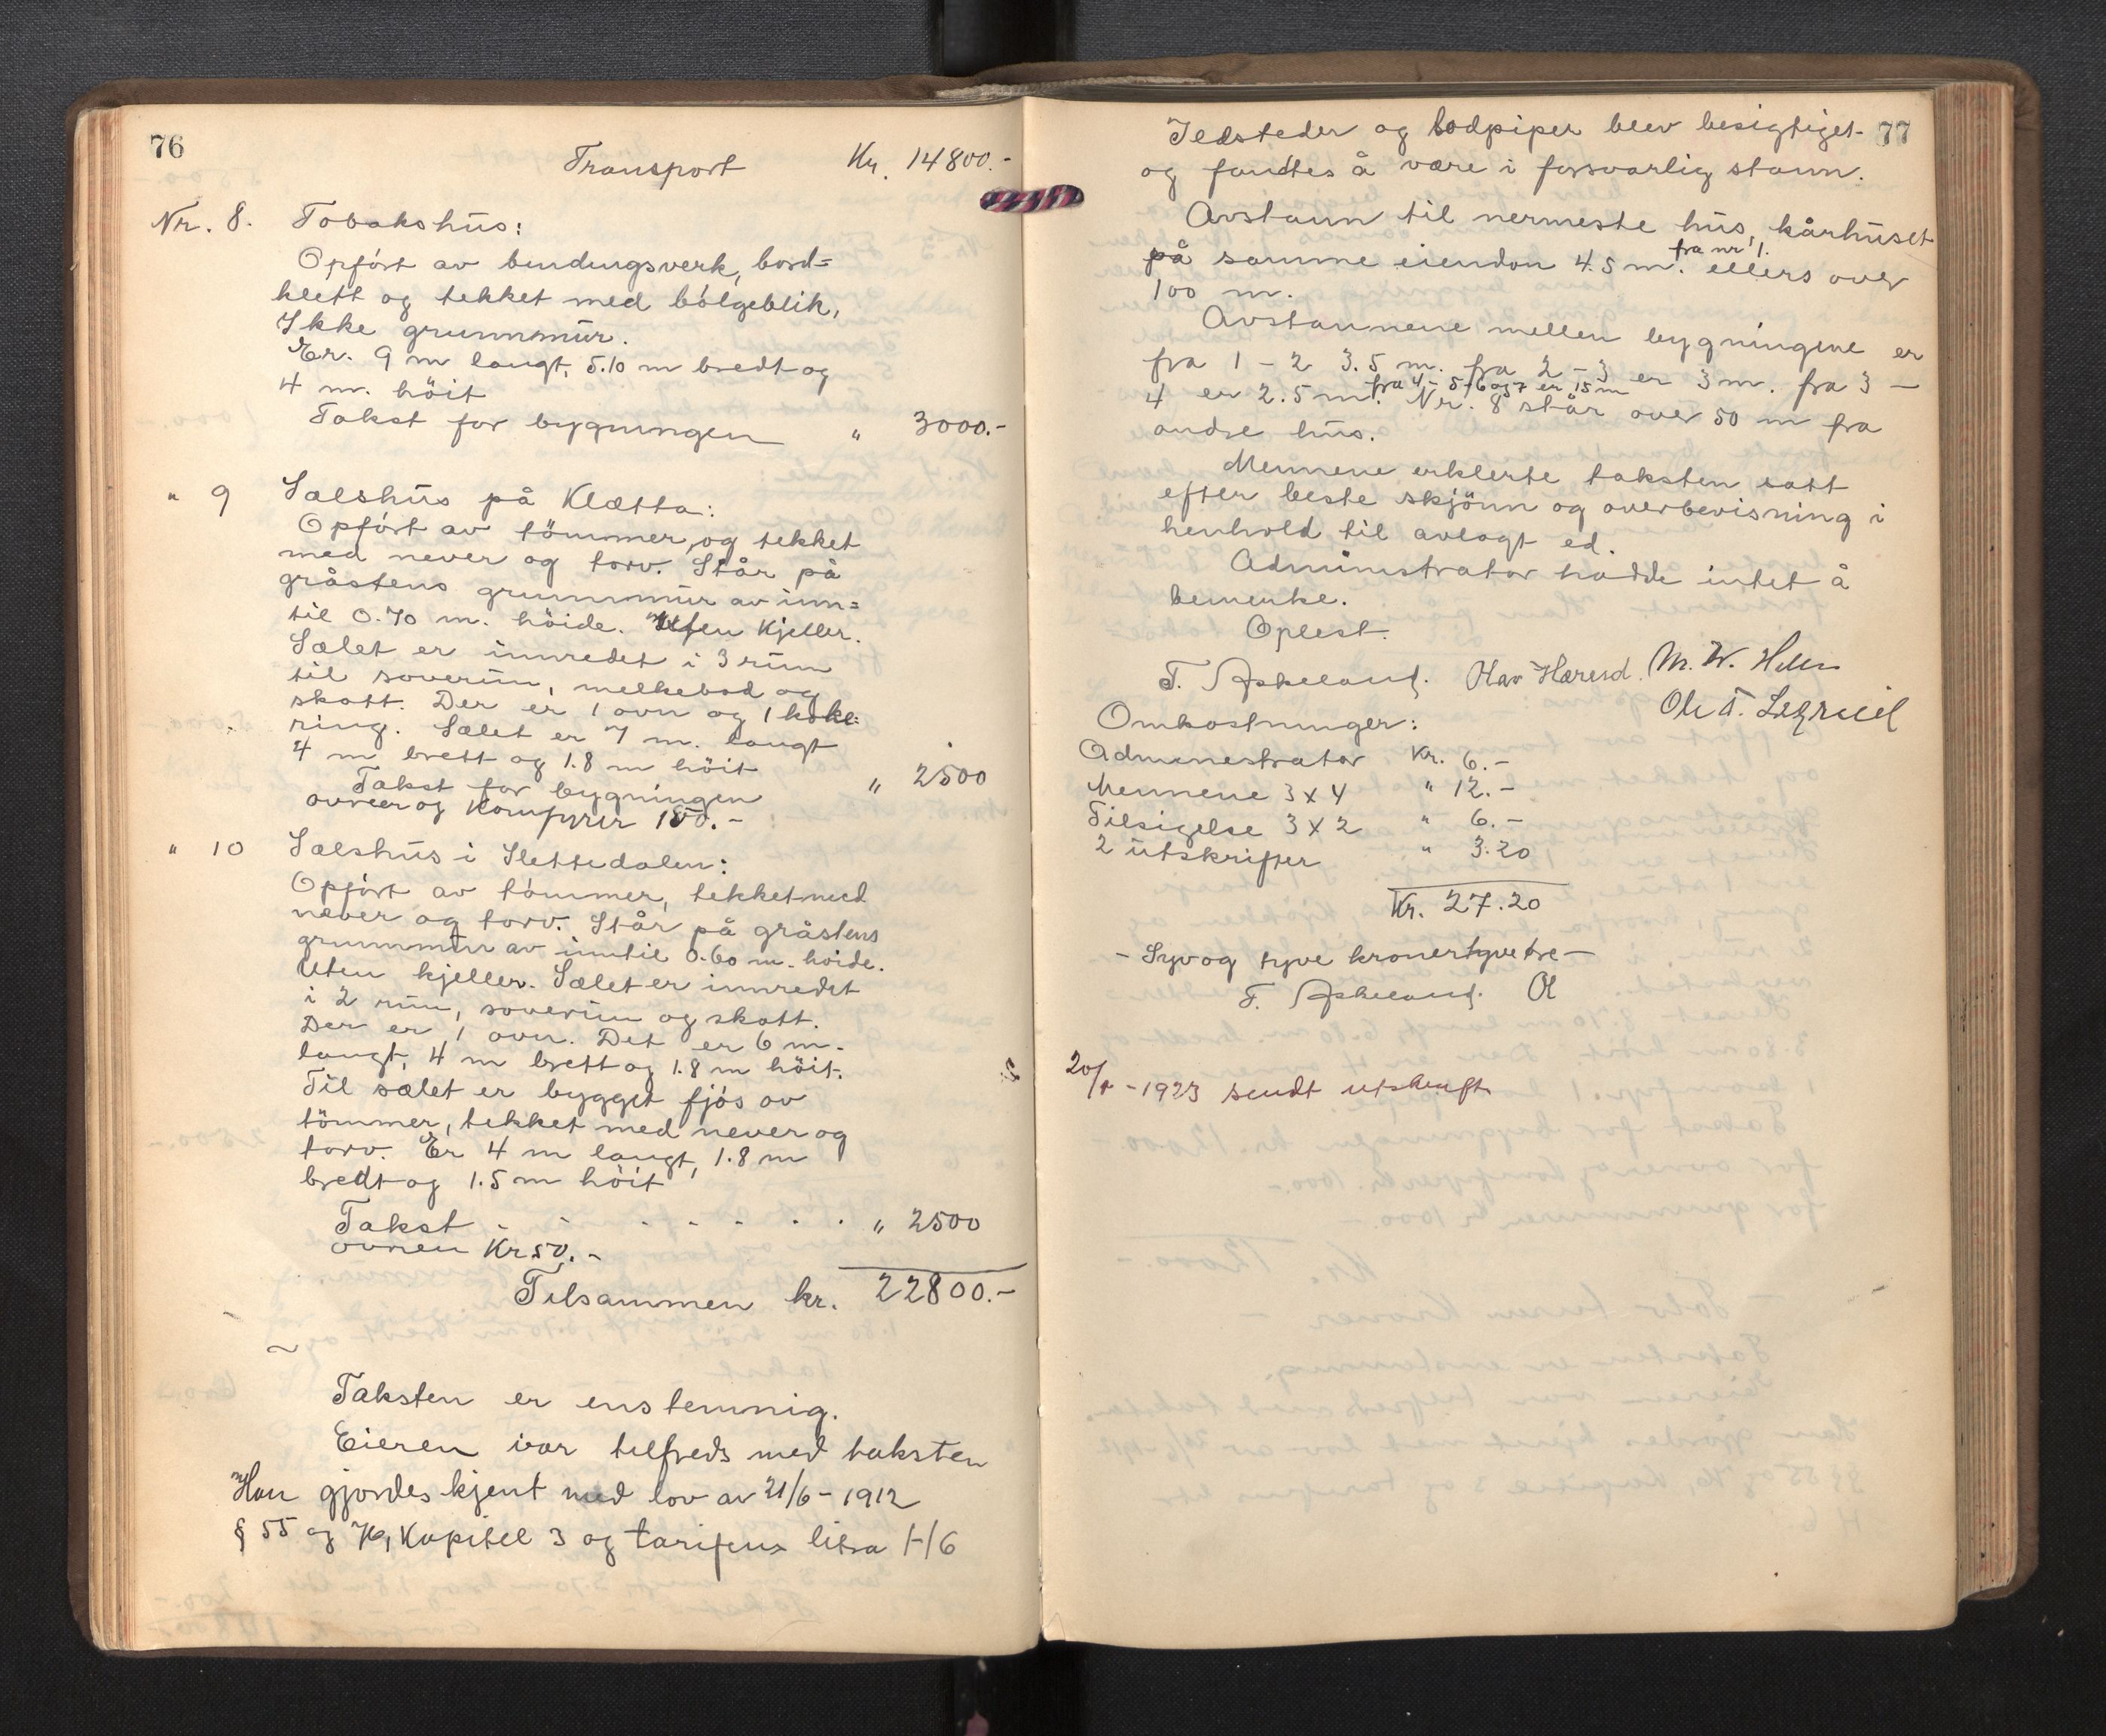 76
Transport Kr. 14800.-
Nr. 8. Tobakshus:
Opfört av bindingsverk, bord=
klett og tekket med bölgeblik,
Ikke grunnmur.
Er. 9 m langt, 5.10 m bredt og
4 m. höit
Takst for bygningen " 3000.-
" 9 Sælshus på Klætta:
Opfört av tömmer, og tekket
med never og torv. Står på
gråstens grunnmur av inn=
til 0.70 m. höide. Uten Kjeller.
Sælet er innredet i 3 rum
til soverum, melkebod og
skott. Der er 1 ovn og 1 koke=
ring. Sælet er 7 m. langt
4 m brett og 1.8 m höit
Takst for bygningen " 2500
ovner og Komfyrer 150.-
" 10 Sælshus i Slettedalen:
Opfört av tömmer, tekket med
never og torv. Står på gråstens
grunnmur av inntil 0.60 m. höide.
Uten kjeller. Sælet er innredet
i 2 rum, soverum og skott.
Der er 1 ovn. Det er 6 m.
langt, 4 m brett og 1.8 m höit.
Til sælet er bygget fjös av
tömmer, tekket med never og
torv. Er 4 m langt, 1.8 m
bredt og 1.5 m höit
Takst - - - - - - . . " 2500
ovnen Kr 50.-
Tilsammen kr. 22800.-
Taksten er enstemmig.
Eieren var tilfreds med taksten
Han gjordes kjent med lov av 21/6 - 1912
§ 55 og 76, Kapitel 3 og tarifens litra H 6
77
Ildsteder og sodpiper blev besigtiget
og fandtes å være i forsvarlig stann.
Avstann til nermeste hus, kårhuset
fra nr 1.
på samme eiendon 4.5 m. ellers over
100 m.
Avstannene mellen bygningene er
fra 1 - 2 3.5 m. fra 2 - 3 er 3 m. fra 3 -
fra 4 - 5-6 og 7 er 15 m
4 er 2.5 m. Nr. 8 står over 50 m fra
andre hus.
Mennene erklerte taksten satt
efter beste skjönn og overbevisning i
henhold til avlagt ed.
Administrator hadde intet å
bemerke.
Oplest.
T. Askeland. Olav
Omkostninger:
Administrator Kr. 6.-
Mennene 3 x 4 " 12.-
Tilsigelse 3 x 2 " 6.-
2 utskrifter " 3.20
Kr. 27.20
- Syv og tyve kroner tyve øre -
T. Askeland.
1923 sendt utskrift